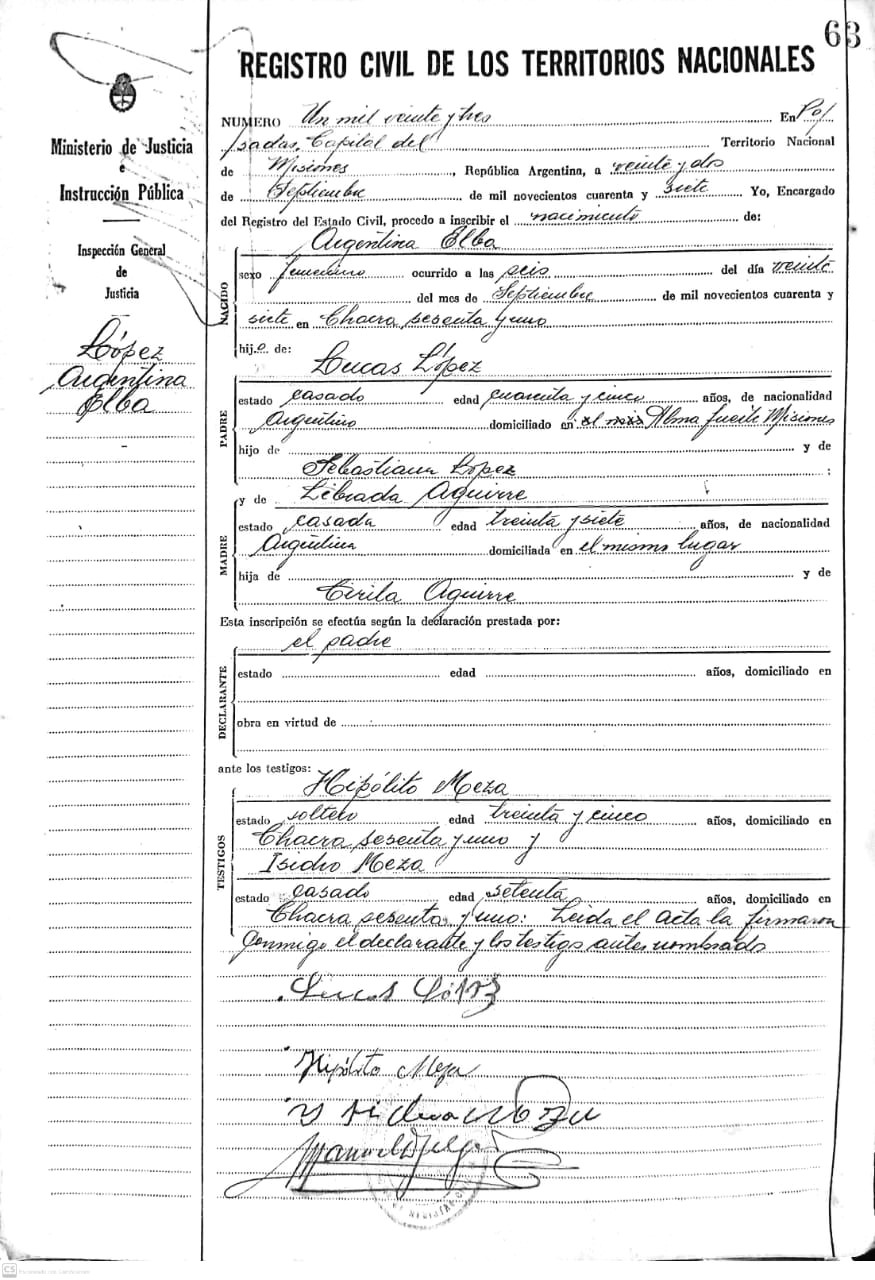 63
REGISTRO CIVIL DE LOS TERRITORIOS NACIONALES
Ministerio de Justicia
e
Instrucción Pública
Inspección General
de
Justicia
López
Argentina
Elba
NUMERO Un mil veinte y tres En Po/
sadas, Capital del Territorio Nacional
de Misiones, República Argentina, a veinte y dos
de Septiembre de mil novecientos cuarenta y siete Yo, Encargado
del Registro del Estado Civil, procedo a inscribir el nacimiento de:
Argentina Elba
NACIDO
sexo femenino ocurrido a las seis del día veinte
del mes de Septiembre de mil novecientos cuarenta y
siete en Chacra sesenta y uno
hij o de:
Lucas López
PADRE
estado casado edad cuarenta y cinco años, de nacionalidad
Argentino domiciliado en Alma fuerte Misiones
hijo de y de
Sebastiana López :
y de Librada Aguirre
MADRE
estado casada edad treinta y siete años, de nacionalidad
Argentina domiciliada en el mismo lugar
hija de y de
Cirila Aguirre
Esta inscripción se efectúa según la declaración prestada por:
el padre
DECLARANTE
estado edad años, domiciliado en
obra en virtud de
ante los testigos:
Hipólito Meza
TESTIGOS
estado soltero edad treinta y cinco años, domiciliado en
Chacra sesenta y uno y
Isidro Meza
estado casado edad setenta años, domiciliado en
Chacra sesenta y uno: Leida el Acta la firmaron
conmigo el declarante y los testigs antes nombrado
Lucas López
Hipólito Meza
CS